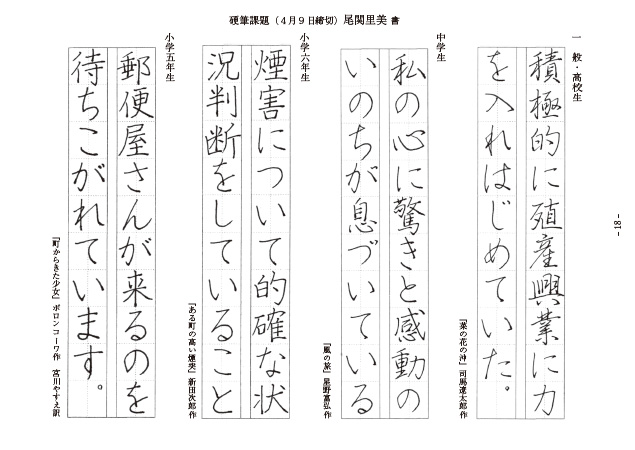 硬筆課題（4月9日締切）尾関里美 書
一般・高校生
積極的に殖産興業に力
を入れはじめていた。
『菜の花の沖』司馬遼太郎 作
中学生
私の心に驚きと感動の
いのちが息づいている
『風の旅』星野富弘 作
小学六年生
煙害について的確な状
況判断をしていること
『ある町の高い煙突』新田次郎 作
小学五年生
郵便屋さんが来るのを
待ちこがれています。
『町からきた少女』ボロンコーワ作 宮川やすえ訳
- 18 -